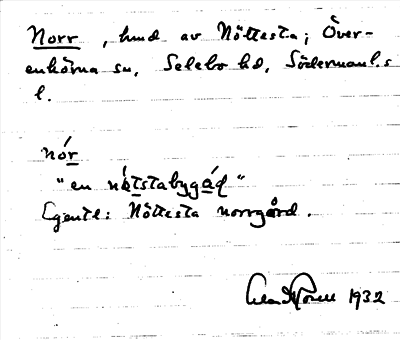 Norr, hmd av Nöttesta; Över-
enhörna sn, Selebo hd, Södermanl.s
l.
nór
"en nǿtstabygáḍ"
Egentl: Nöttesta norrgård.
1932